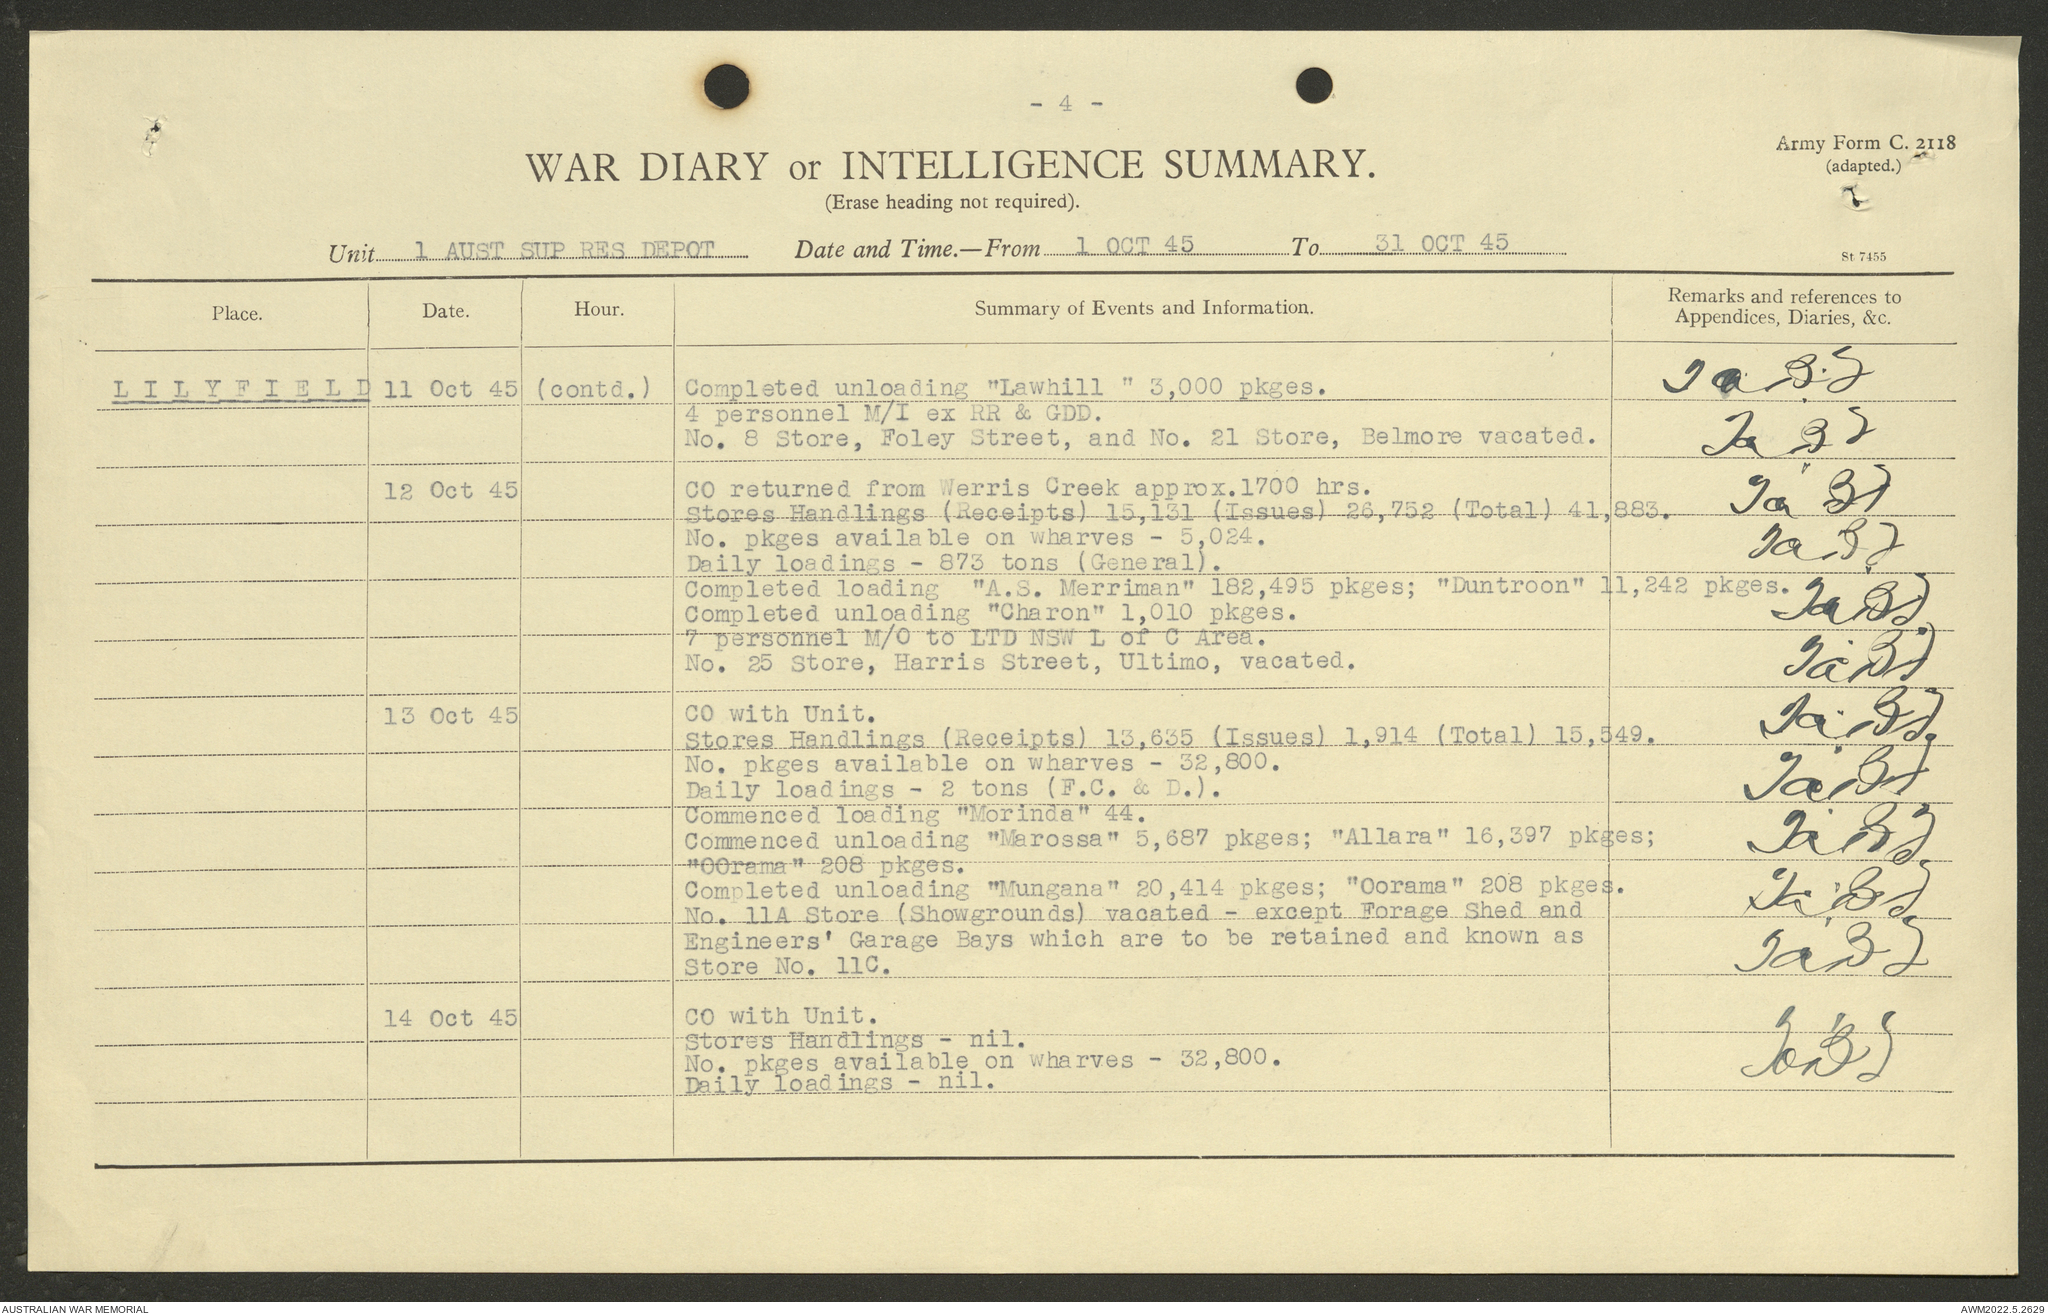 - 4 -
Army Form C. 2118
(adapted.)
WAR DIARY or INTELLIGENCE SUMMARY.
(Erase heading not required).
Unit 1 AUST SUP RES DEPOT Date and Time.—From 1 OCT 45 To 31 OCT 45
St 7455
Place. Date. Hour. Summary of Events and Information. Remarks and references to Appendices, Diaries, &c.
LILYFIELD 11 Oct 45 (contd.) Completed unloading "Lawhill " 3,000 pkges.
4 personnel M/I ex RR & GDD.
No. 8 Store, Foley Street, and No. 21 Store, Belmore vacated.
12 Oct 45 CO returned from Werris Creek approx.1700 hrs.
Stores Handlings (Receipts) 15,131 (Issues) 26,752 (Total) 41,883.
No. pkges available on wharves - 5,024.
Daily loadings - 873 tons (General).
Completed loading "A.S. Merriman" 182,495 pkges; "Duntroon" 11,242 pkges.
Completed unloading "Charon" 1,010 pkges.
7 personnel M/O to LTD NSW L of C Area.
No. 25 Store, Harris Street, Ultimo, vacated.
13 Oct 45 CO with Unit.
Stores Handlings (Receipts) 13,635 (Issues) 1,914 (Total) 15,549.
No. pkges available on wharves - 32,800.
Daily loadings - 2 tons (F.C. & D.).
Commenced loading "Morinda" 44.
Commenced unloading "Marossa" 5,687 pkges; "Allara" 16,397 pkges;
"OOrama" 208 pkges.
Completed unloading "Mungana" 20,414 pkges; "Oorama" 208 pkges.
No. 11A Store (Showgrounds) vacated - except Forage Shed and
Engineers' Garage Bays which are to be retained and known as
Store No. 11C.
14 Oct 45 CO with Unit.
Stores Handlings - nil.
No. pkges available on wharves - 32,800.
Daily loadings - nil.
AUSTRALIAN WAR MEMORIAL AWM2022.5.2629